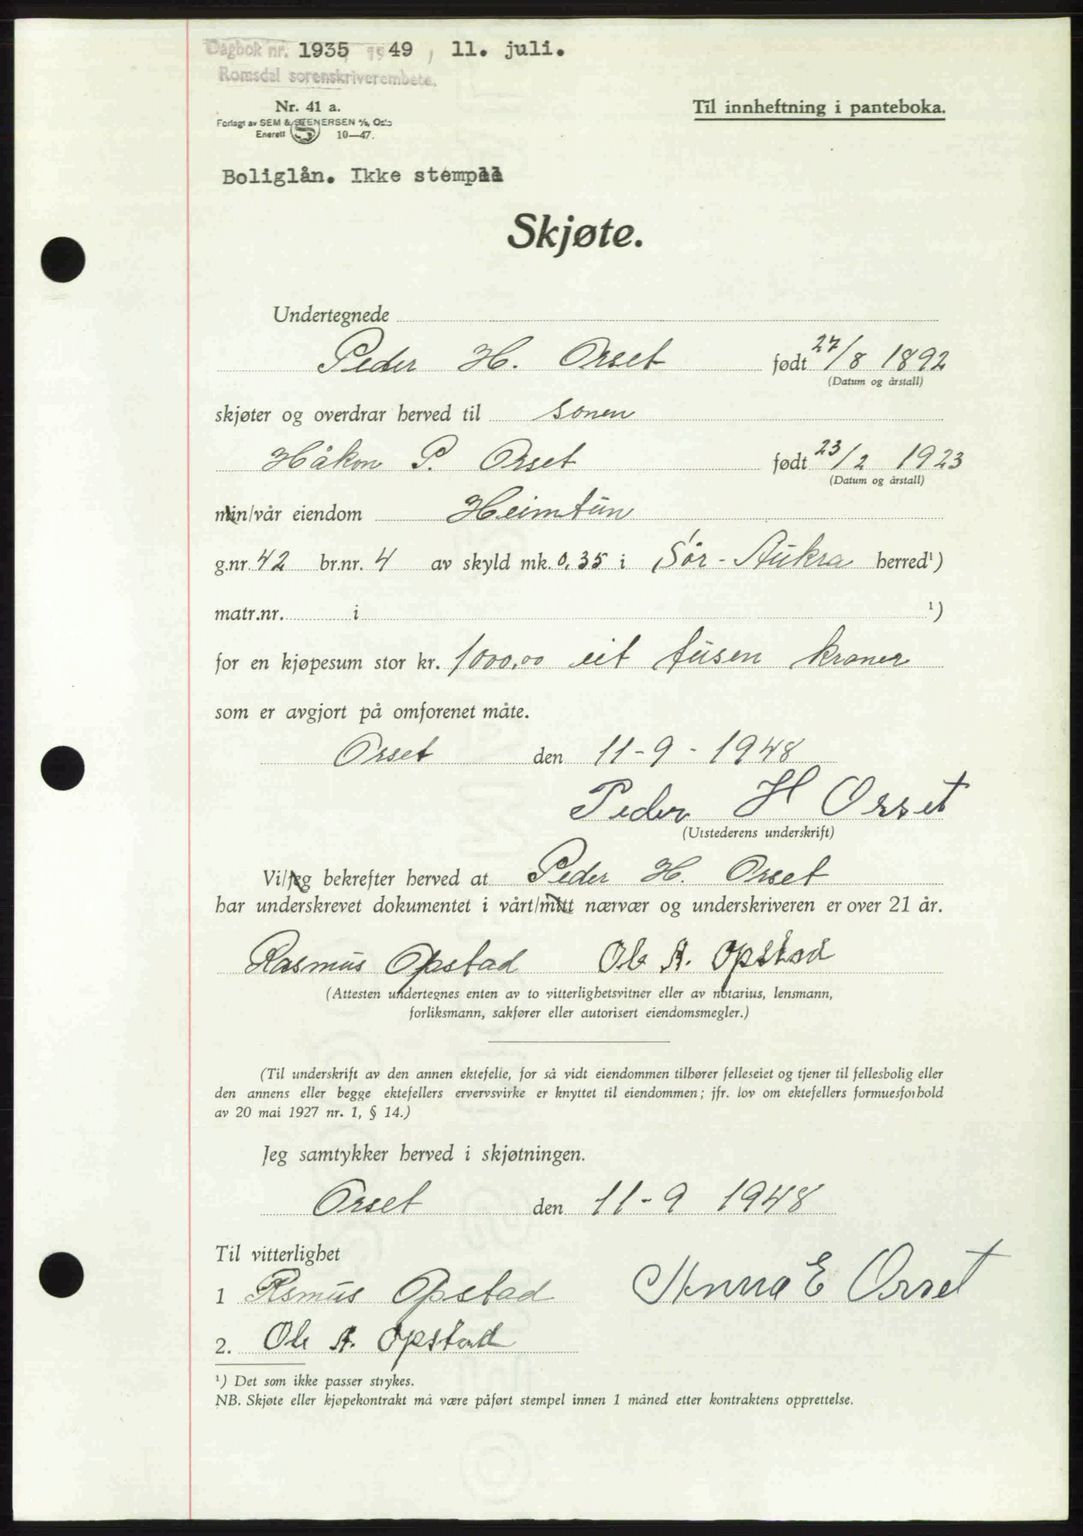 Dagbok nr. 1935 1949, 11. juli.
Romsdal sorenskriverembete.
Nr. 41 a.
Forlagt av SEM & STENERSEN A/S, Oslo
Enerett 10—47.
Til innheftning i panteboka.
Boliglån. Ikke stempel
Skjøte.
Undertegnede
Peder H. Orset født 27/8 1892
(Datum og årstall)
skjøter og overdrar herved til sonen
Håkon P. Orset født 23/2 1923
(Datum og årstall)
min/vår eiendom Heimtun
g.nr. 42 br.nr. 4 av skyld mk. 0,35 i Sør-Aukra herred¹)
matr.nr. i ¹)
for en kjøpesum stor kr. 1000,00 eit tusen kroner
som er avgjort på omforenet måte.
Orset den 11-9-1948
Peder H Orset
(Utstederens underskrift)
Vi/jeg bekrefter herved at Peder H. Orset
har underskrevet dokumentet i vårt/mitt nærvær og underskriveren er over 21 år.
Rasmus Opstad Ole A. Opstad
(Attesten undertegnes enten av to vitterlighetsvitner eller av notarius, lensmann,
forliksmann, sakfører eller autorisert eiendomsmegler.)
(Til underskrift av den annen ektefelle, for så vidt eiendommen tilhører felleseiet og tjener til fellesbolig eller
den annens eller begge ektefellers ervervsvirke er knyttet til eiendommen; jfr. lov om ektefellers formuesforhold
av 20 mai 1927 nr. 1, § 14.)
Jeg samtykker herved i skjøtningen.
Orset den 11-9 1948
Til vitterlighet
1 Rasmus Opstad Anna E Orset
2. Ole A. Opstad
¹) Det som ikke passer strykes.
NB. Skjøte eller kjøpekontrakt må være påført stempel innen 1 måned etter kontraktens opprettelse.